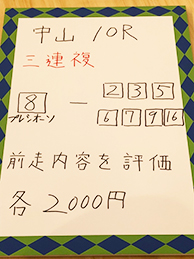 中山 10R
三連複
8 - 2 3 5
プレシオーソ 6 7 9 16
前走内容を評価
各 2000円